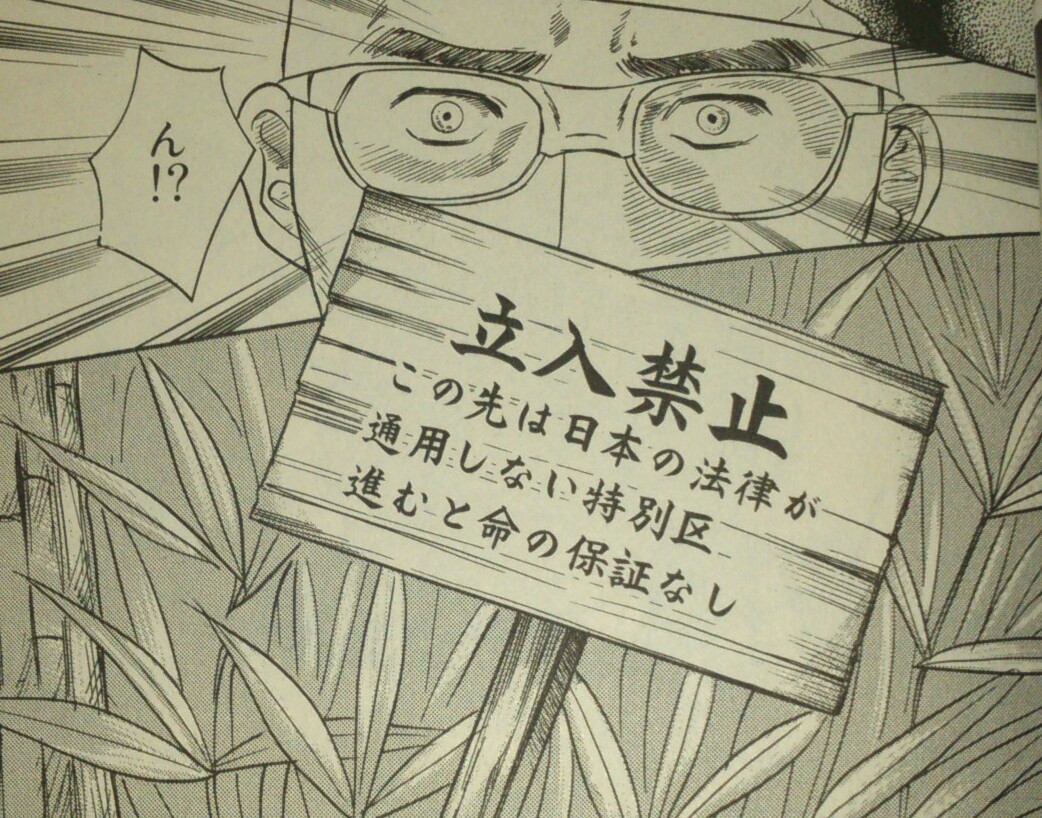 ん!?
立入禁止
この先は日本の法律が
通用しない特別区
進むと命の保証なし